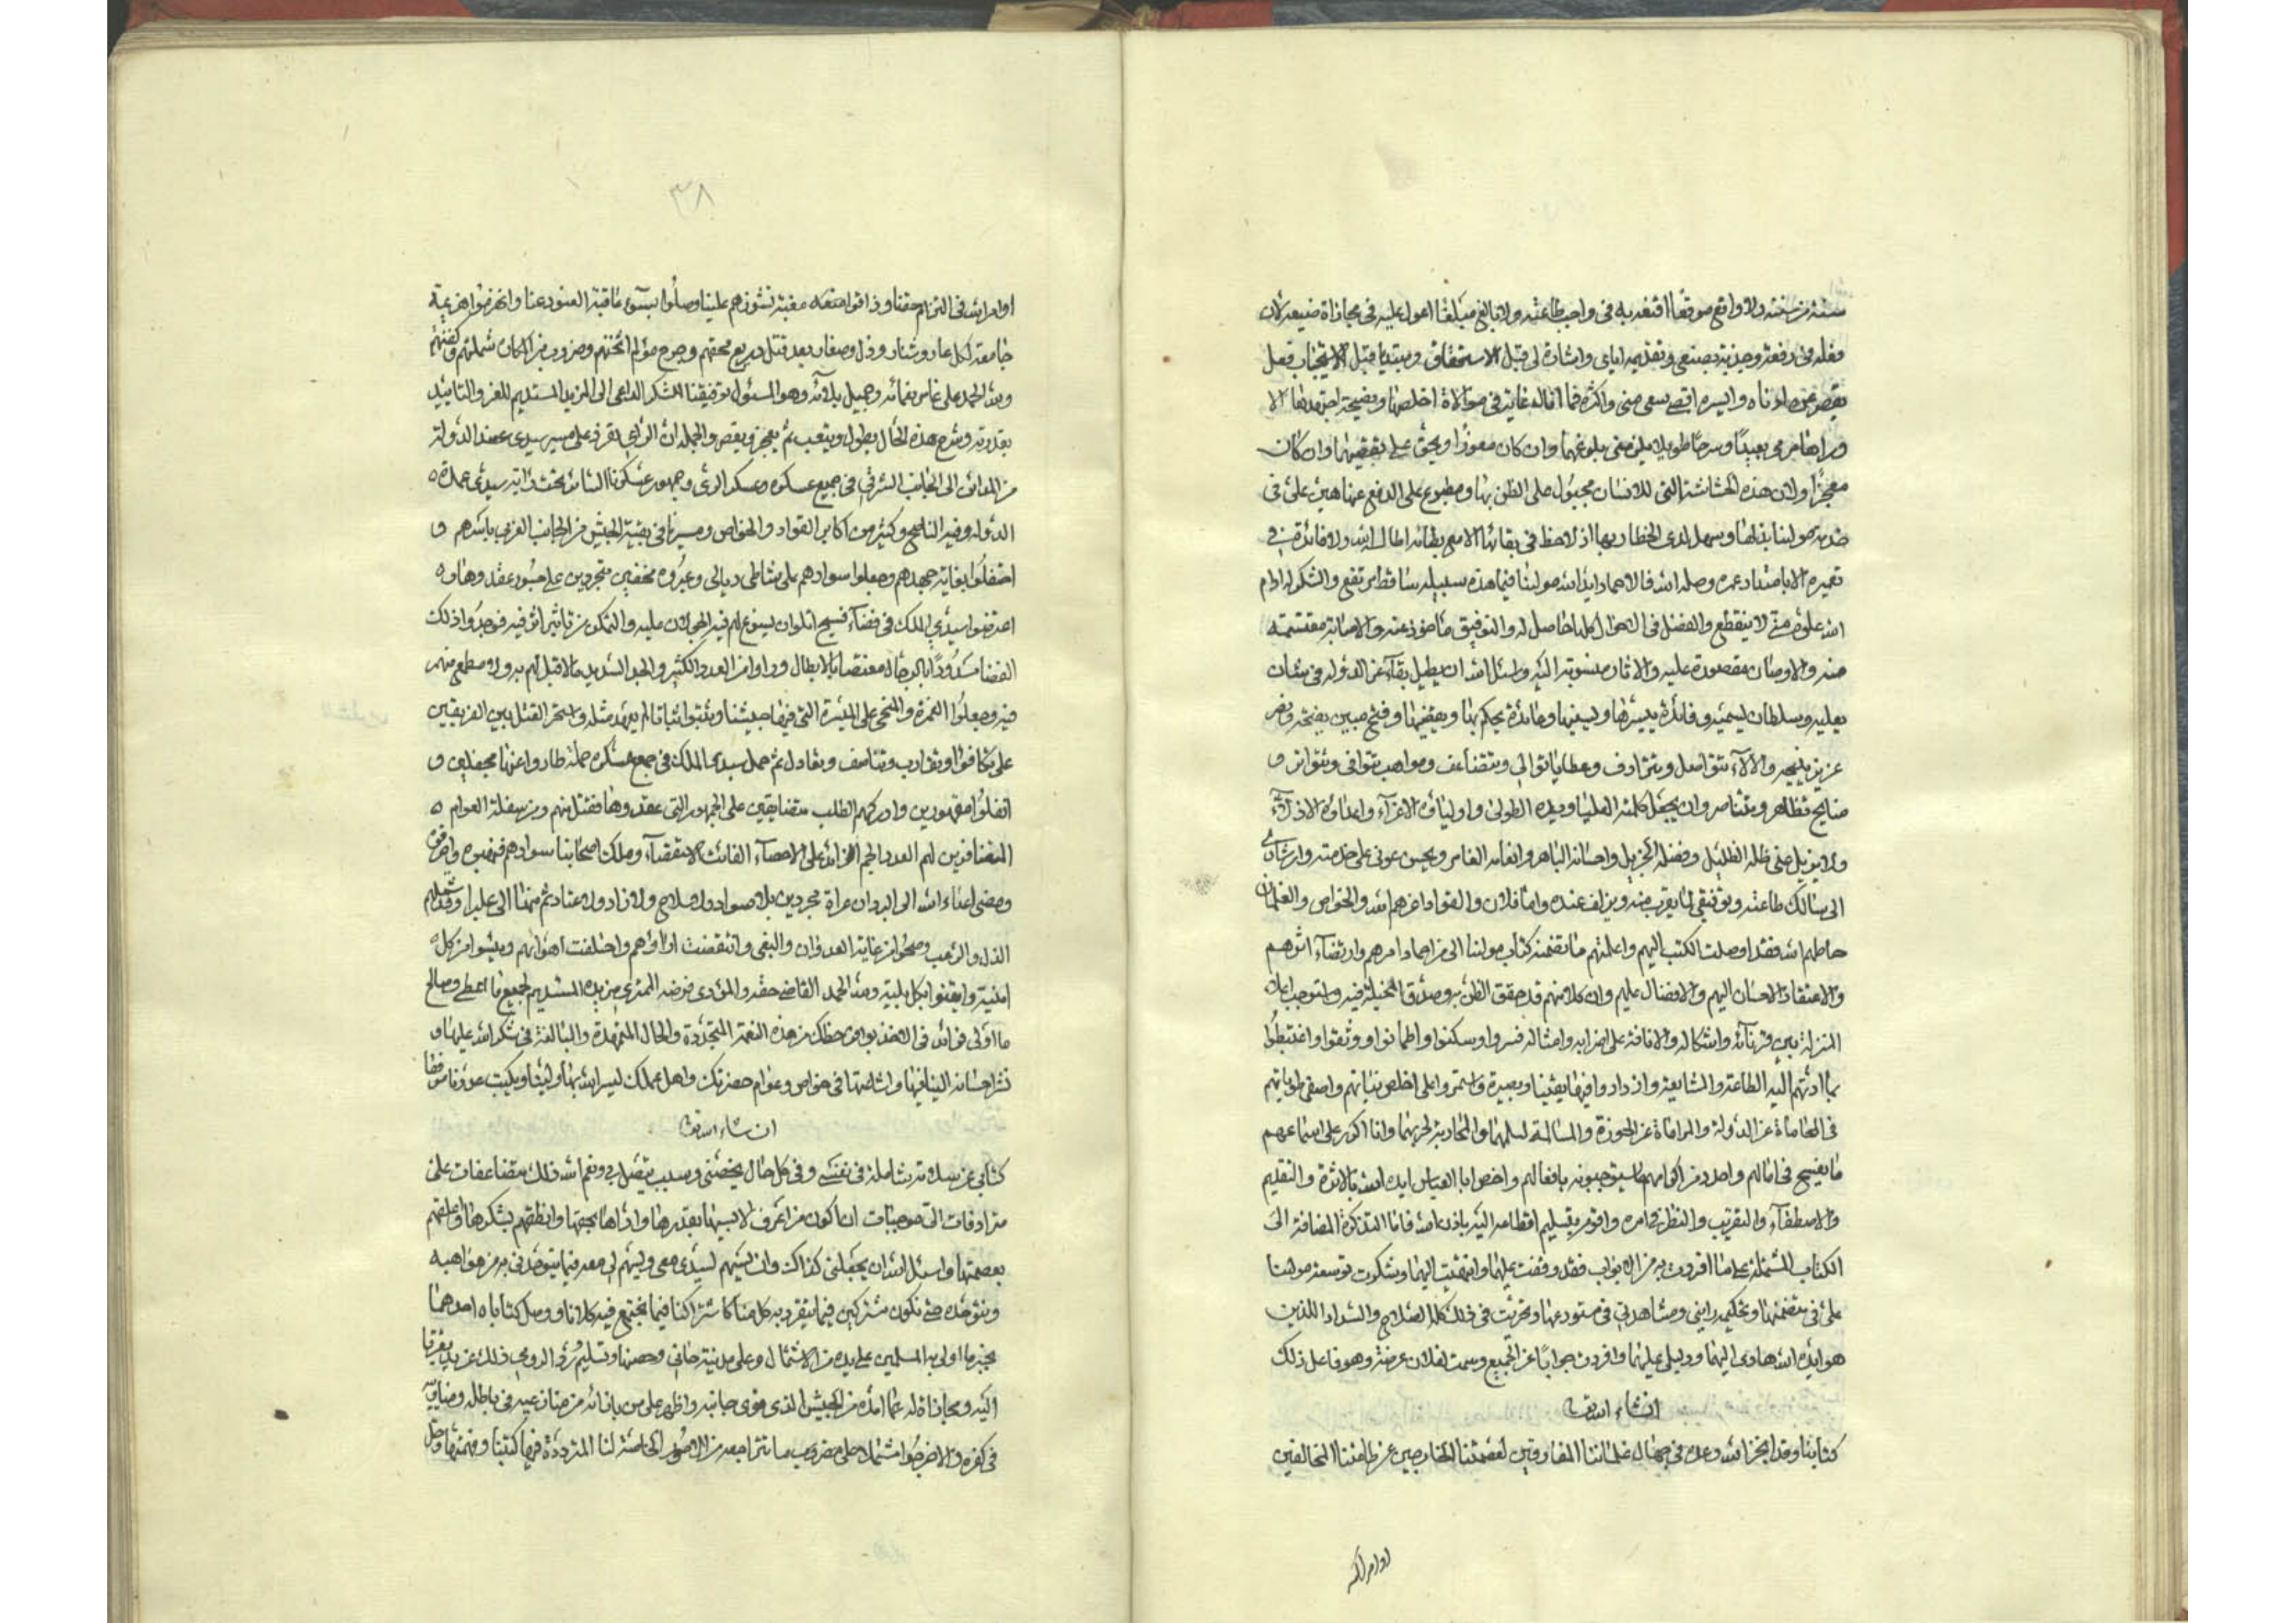 منة من مننه ولا واقع موقعًا اقتعد به في واجب طاعته ولا بالغ مبلغًا اعول عليه في مجازاة صنيعه لان
فعله في رفعته وجذبه بضبعي وتقديمه اياي واشارة لي قبل الاستحقاق ومبتديا قبل الاستيجاب فعل
يقصر عن ادناه وايسره اقصى سعي مني واكثره فما اناله غاية في موالاة اخلصها ونصيحة اجتهد فيها الا
وراها مرمى بعيدًا ومدًا طويلا يلزمني بلوغهما وان كان معوزًا ويحق علي تقصيهما وان كان
معجزًا ولان هذه الحشاشة التي للانسان مجبول على الظن بها ومطبوع على الدفع عنها هين علي في
خدمة مولينا بذلها وسهل لدي الخطار بها اذ لا حظ في بقائها الا مع بقائه اطال الله ولا فائدة في
تعميره الا بامتداد عمره وصله الله فالاحماد ايد الله مولينا فيما هذه سبيله ساقط مرتفع والشكر له ادام
الله علوه لا ينقطع والفضل في الاحوال كلها حاصل له والتوفيق ماخوذ عنه والاصابة مقتسمة
منه والاوصاف مقصورة عليه والاثار منسوبة اليه واسئل الله ان يطيل بقاء عز الدولة في شان
يعليه وسلطان يسميه وفائدة ييسرها ويسنيها وعائدة يحكم بها ويقضيها وفتح مبين يفتحه ونصر
عزيز يتيحه والالآء تتواصل وتترادف وعطايا تتوالى وتتضاعف ومواهب تتوافى وتتواتر و
منايح تتظاهر وتتناصر وان يجعل كلمته العليا ويده الطولى واولياؤه الاعزآء واعداؤه الاذلآء
ولا يزيل عني ظله الظليل وفضله الجزيل واحسانه الباهر وانعامه الغامر ويحسن عوني على خدمته وارشادي
الى مسالك طاعته وتوفيقي لما يقرب منه ويزلف عنده واما فلان والقواد اعزهم الله والخواص والغلمان
حاطهم الله فقد اوصلت الكتب اليهم واعلمتهم ما تضمنه كتاب مولينا الي من احماد امرهم وارتضآء اثرهم
والاعتقاد لاحسان اليهم والافضال عليهم وان كلا منهم قد حقق الظن به وصدق المخيلة فيه واستوجب اعلاء
المنزلة بين قرنآئه واشكاله والانافة على اضرابه وامثاله فسروا وسكنوا واطمانوا ووثقوا واغتبطوا
بما ادتهم اليه الطاعة والمشايعة وازدادوا فيها يقينا وبصيرة واستمروا على اخلص نياتهم واصفى طوياتهم
في المحاماة عن الدولة والمراماة عن الحوزة والمسالمة لسلمها والمحاربة لحربها وانا اكرر على اسماعهم
ما يفسح في امالهم واصدد من اكرامهم ما يستوجبونه بافعالهم واخص ابا العباس ايده الله بالاثرة والتقديم
والاصطفآء والتقريب والنظر في امره واقوم بتسليم اقطاعه اليه باذن الله فاما التذكرة المضافة الى
الكتاب المشتملة على ما افردت به من الابواب فقد وقفت عليها وانتهيت اليها وشكرت توسعة مولينا
علي في متضمنها وتحكيمه رايي ومشاهدتي في مستودعها وتحريت في ذلك كله الصلاح والسداد اللذين
هو ايده الله هادي اليهما ودليلي عليهما وافردت جوابًا عن الجميع وسمت لفلان عرضه وهو فاعل ذلك
انشاء الله تع
كتابنا وقد انجز الله وعده في جهال غلماننا المفارقين لعصمتنا الخارجين عن طاعتنا المخالفين
اوامر الله
٣٨
اوامر الله في التزام حقنا وذاقوا مغبة نشوزهم علينا وصلُوا بسوء عاقبة العنود عنا وانهزموا هزيمة
جامعة لكل عار وشنار وذل وصغار بعد قتل ذريع محقهم وجرح مؤلم اثخنهم وضروب من المكاره شملتهم وكنفتهم
ولله الحمد على غامر نعمائه وجميل بلآئه وهو المسئول توفيقنا لشكر الداعي الى المزيد المستديم للعز والتاييد
بقدرته وشرح هذه الحال يطول ويتعب ثم يعجز ويقصر والجملة ان الراي تقرر على مسير سيدي عضد الدولة
من المدائن الى الجانب الشرقي في جميع عسكره وعسكر الري وجمهور عسكرنا السائر تحت راية سيدي عمدة
الدولة وفيه الناجح وكثير من اكابر القواد والخواص ومسيرنا في بقية الجيش من الجانب الغربي باسرهم و
احتفلوا بغاية جهدهم وجعلوا سوادهم على شاطى ديالى وعبروه مخفين متجردين على جسور عقدوها و
اعترضوا سيدي الملك في فضآء فسيح املوا ان يسوغ لهم فيه الجولان عليه والتمكن من تاثير اثر فيه فوجدوا ذلك
الفضا مسدودًا بالرجال مغتصا بالابطال وراوا من العدد الكثير والجد الشديد ما لا قبل لهم به ولا مطمع لهم
فيه وجعلوا الغمرة والمنحى على الميسرة التي فيها جيشنا وثبتوا ثباتا لم يعهد مثله واستحر القتل بين الفريقين
على تكافؤ وتقارب وتناصف وتعادل ثم حمل سيدي الملك في جمع عسكره حملة طاروا عنها مجفلين و
انفلوا مقهورين وادركهم الطلب متضايقين على الجسور التي عقدوها فقتل منهم ومن سفلة العوام
المتضافرين لهم العدد الجم الزائد على الاحصآء الفائت الاستقصآء وملك اصحابنا سوادهم فنهبوه واحرقوه
ومضى اعداء الله الى البردان عراة مجردين بلا سواد ولا سلاح ولا زاد ولا عتاد ثم منها الى عكبرا وقد شملهم
الذل والرعب وصحوا من غاية العدوان والبغي وانتقضت اراؤهم واختلفت اهوائهم ويئسوا من كل
امنية وايقنوا بكل بلية ولله الحمد القاضي حقه والمؤدي فرضه الممتري مزيده المستديم لجميع ما اعطى وصالح
ما اولى فرائد في الاخذ باوفى حظك من هذه النعمة المتجددة والحال المتمهدة والمبالغة في شكر الله عليها و
نشر احسانه الينا فيها واشاعتها في خواص وعوام حضرتك واهل عملك ليسر الله بها ولينا ويكبت عدونا موفقا
ان شاء الله تع
كتابي عن سلامة شاملة في نفسي وفي كل حال يخصني وسبب يتصل بي ونعم الله فلك متضاعفات علي
مترادفات الي موجبات ان اكون من اعرف لابسيها بقدرها واداهم بحقها وانطقهم بشكرها واعلقهم
بعصمتها واسئل الله ان يجعلني كذلك وان يسهم لسيدي معي ويسهم لي معه فيما يتوحدني به من مواهبه
ويتوحده حتى نكون مشتركين فيما يتفرد به كل منا كاشتراكنا فيما يجتمع فيه كلانا ووصل كتاباه احدهما
بخبر ما اولى به المسلمين على يده من الاشتمال وعلى مدينة حاني وحصنها وتسليم ورد الرومي ذلك عن يد تقربا
اليه ومجازاة له عما امده من الجيش الذي قوى جانبه واظهر على من بازائه من منازعيه في باطله ومضاهيه
في كفره والاخر جُوا مشتملا على ضروب ما تتراجعه من الامور الخاصة لنا المترددة فيها كتبنا وفهمتها وحل